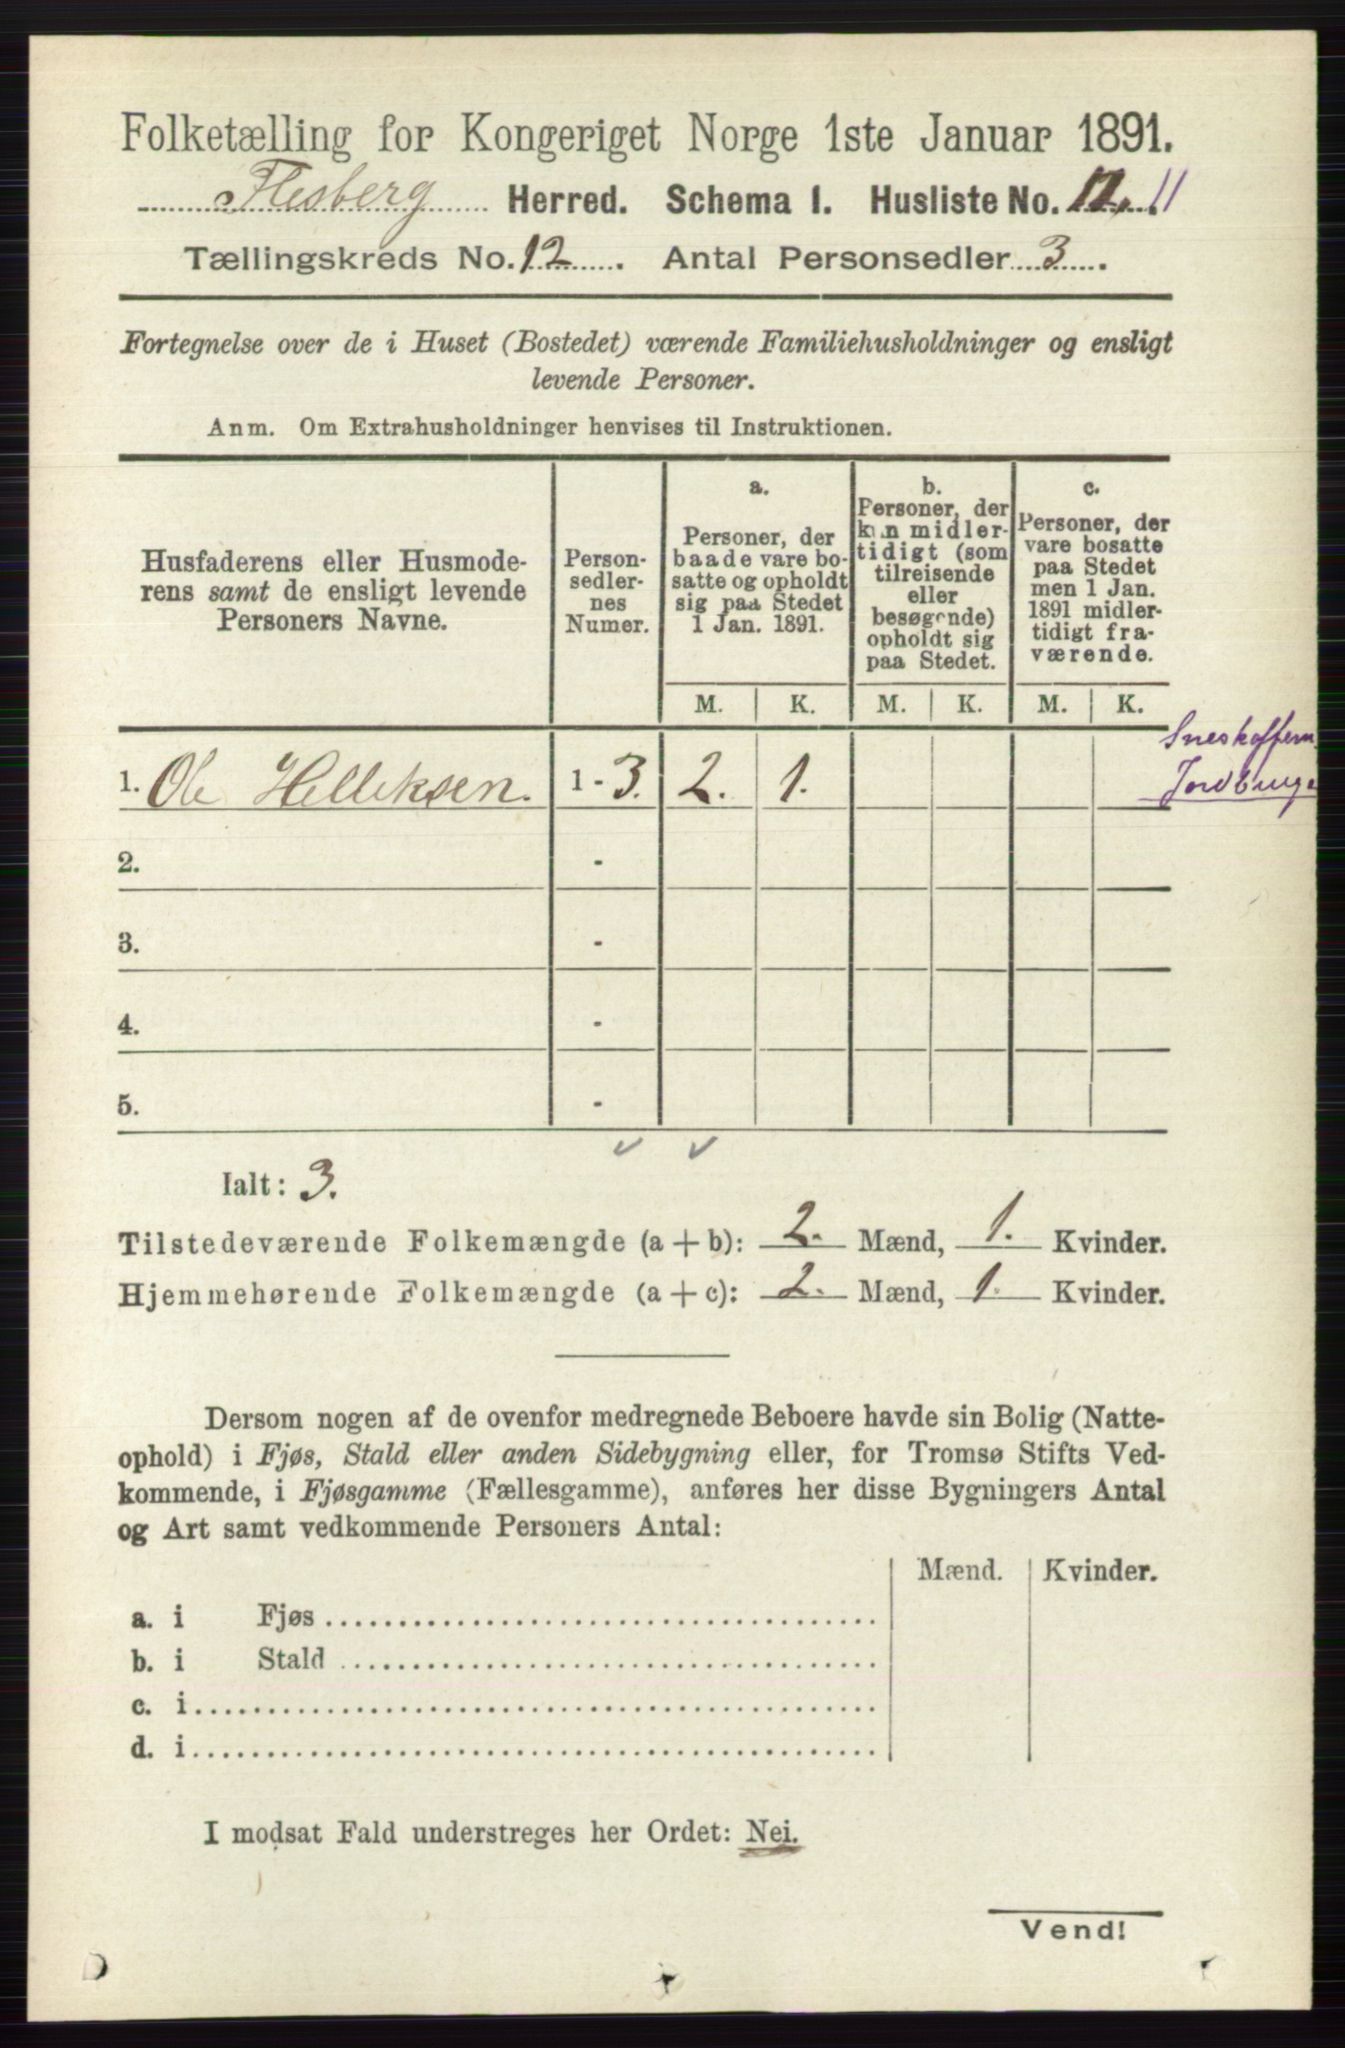 Folketælling for Kongeriget Norge 1ste Januar 1891.
Flesberg Herred. Schema I. Husliste No. 12, 11
Tællingskreds No. 12. Antal Personsedler 3.
Fortegnelse over de i Huset (Bostedet) værende Familiehusholdninger og ensligt
levende Personer.
Anm. Om Extrahusholdninger henvises til Instruktionen.
Husfaderens eller Husmode-
rens samt de ensligt levende
Personers Navne.
Person-
sedler-
nes
Numer.
a.
Personer, der
baade vare bo-
satte og opholdt
sig paa Stedet
1 Jan. 1891.
b.
Personer, der
kun midler-
tidigt (som
tilreisende
eller
besøgende)
opholdt sig
paa Stedet.
c.
Personer, der
vare bosatte
paa Stedet
men 1 Jan.
1891 midler-
tidigt fra-
værende.
M. K. M. K. M. K.
1. Ole Helleksen. 1 - 3. 2. 1.
Jordbruge
2. -
3. -
4. -
5. -
Ialt: 3.
Tilstedeværende Folkemængde (a + b): 2. Mænd, 1. Kvinder.
Hjemmehørende Folkemængde (a + c): 2. Mænd, 1. Kvinder.
Dersom nogen af de ovenfor medregnede Beboere havde sin Bolig (Natte-
ophold) i Fjøs, Stald eller anden Sidebygning eller, for Tromsø Stifts Ved-
kommende, i Fjøsgamme (Fællesgamme), anføres her disse Bygningers Antal
og Art samt vedkommende Personers Antal:
Mænd. Kvinder.
a. i Fjøs
b. i Stald
c. i
d. i
I modsat Fald understreges her Ordet: Nei.
Vend!